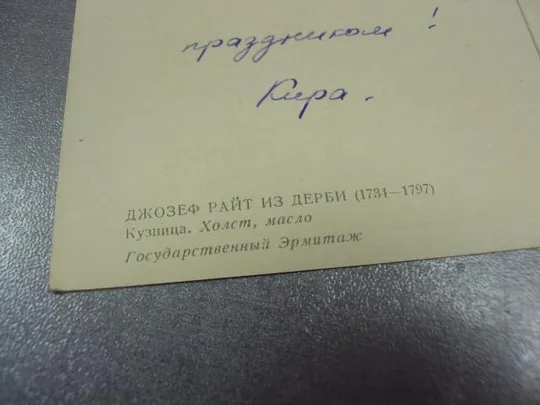 праздником!
Кира.
ДЖОЗЕФ РАЙТ ИЗ ДЕРБИ (1734—1797)
Кузница. Холст, масло
Государственный Эрмитаж